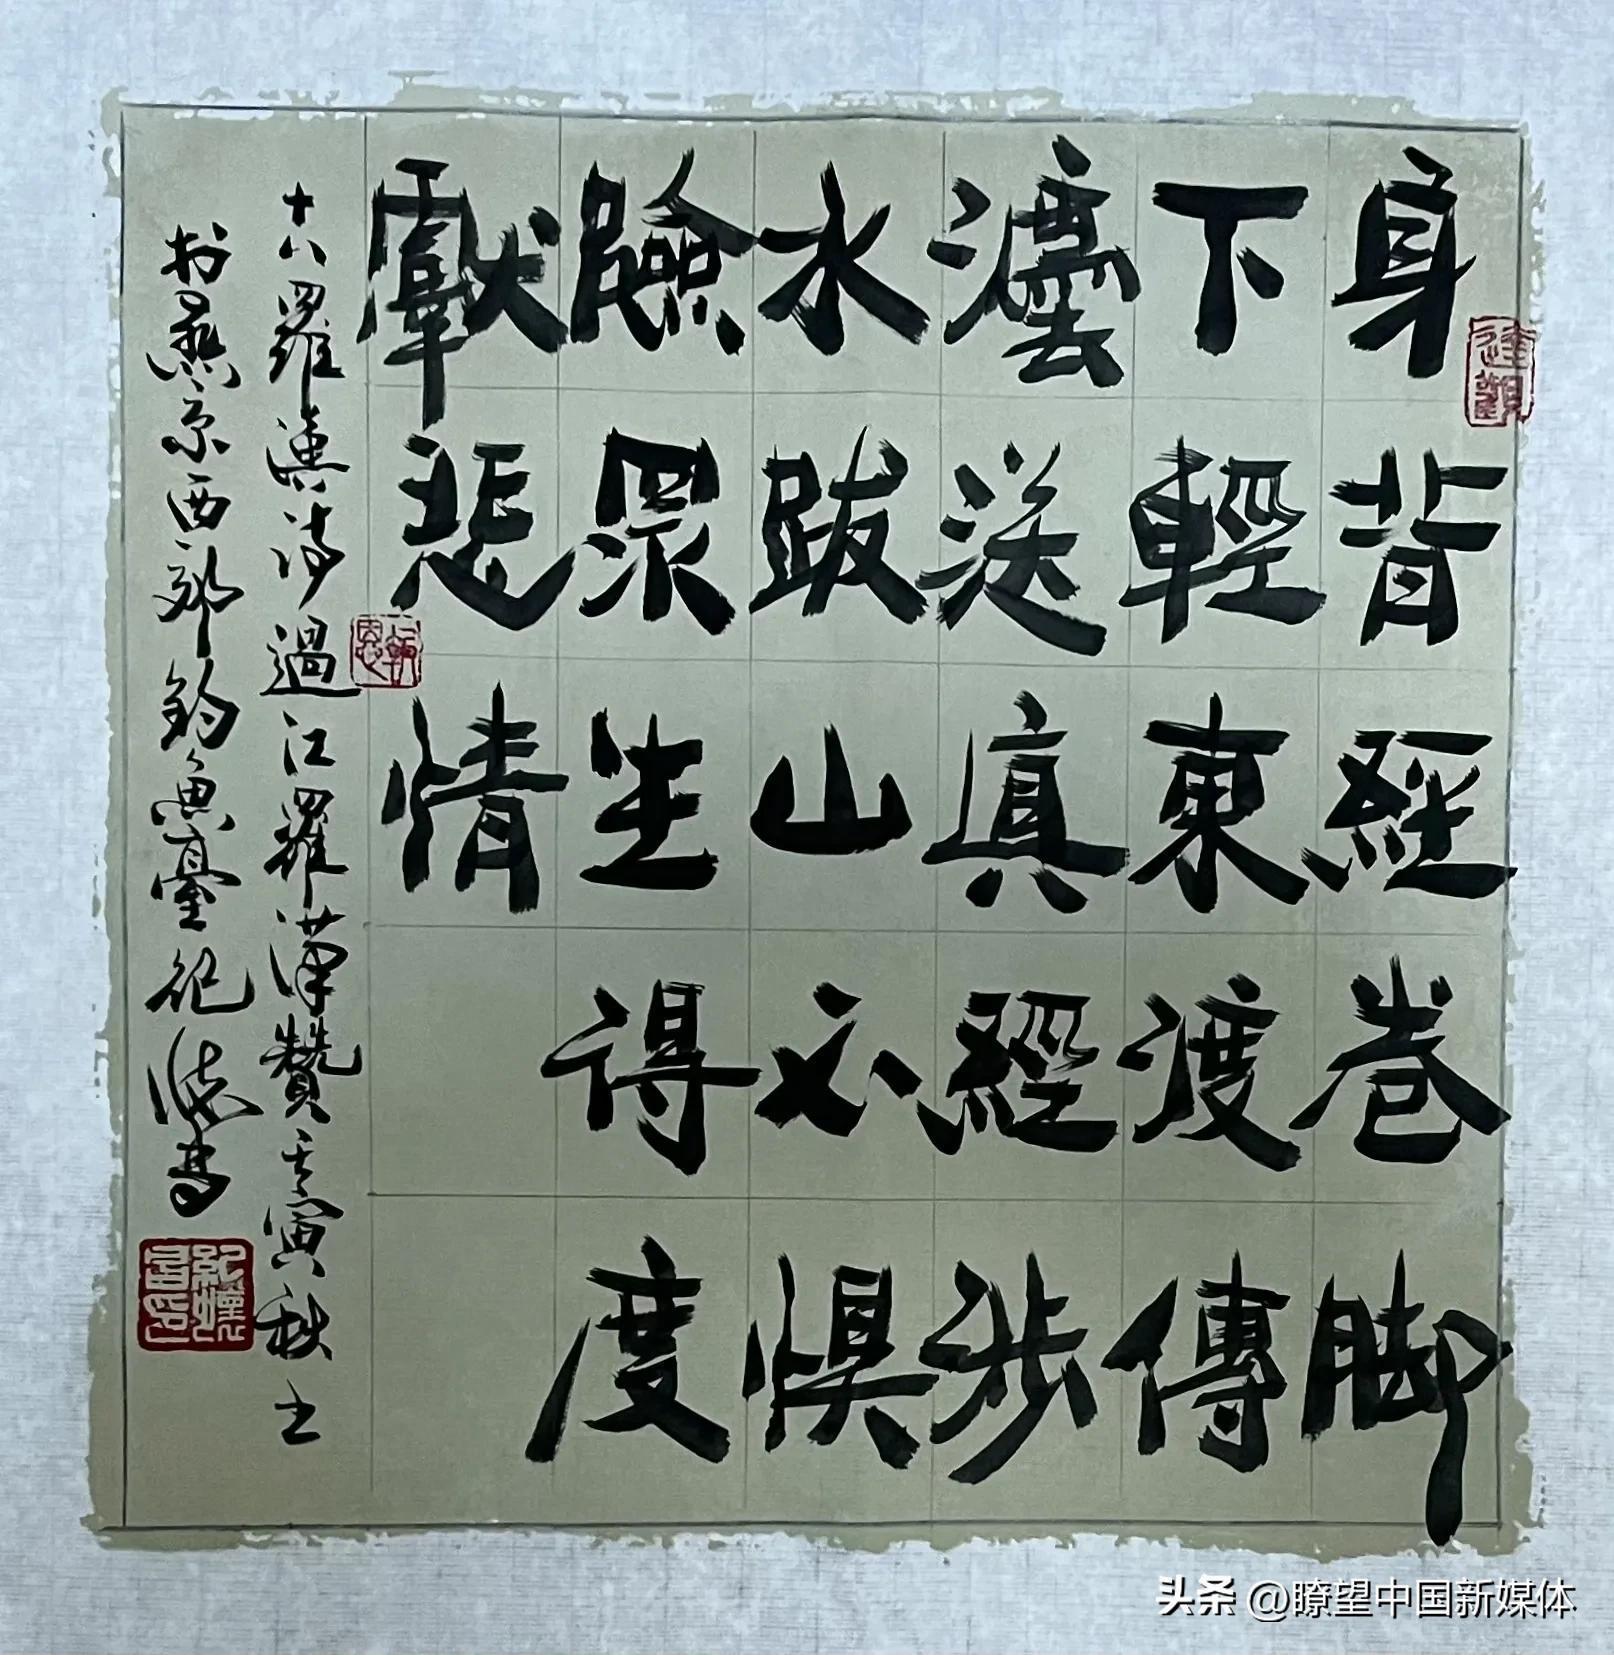 身背經卷脚
下輕東渡傳
法雲送真經涉
水跋山不惧
險眾生得度
獻悲情
十八羅漢诗過江羅漢贊壬寅秋士
於燕京西郊釣魚臺紀
头条 @瞭望中国新媒体